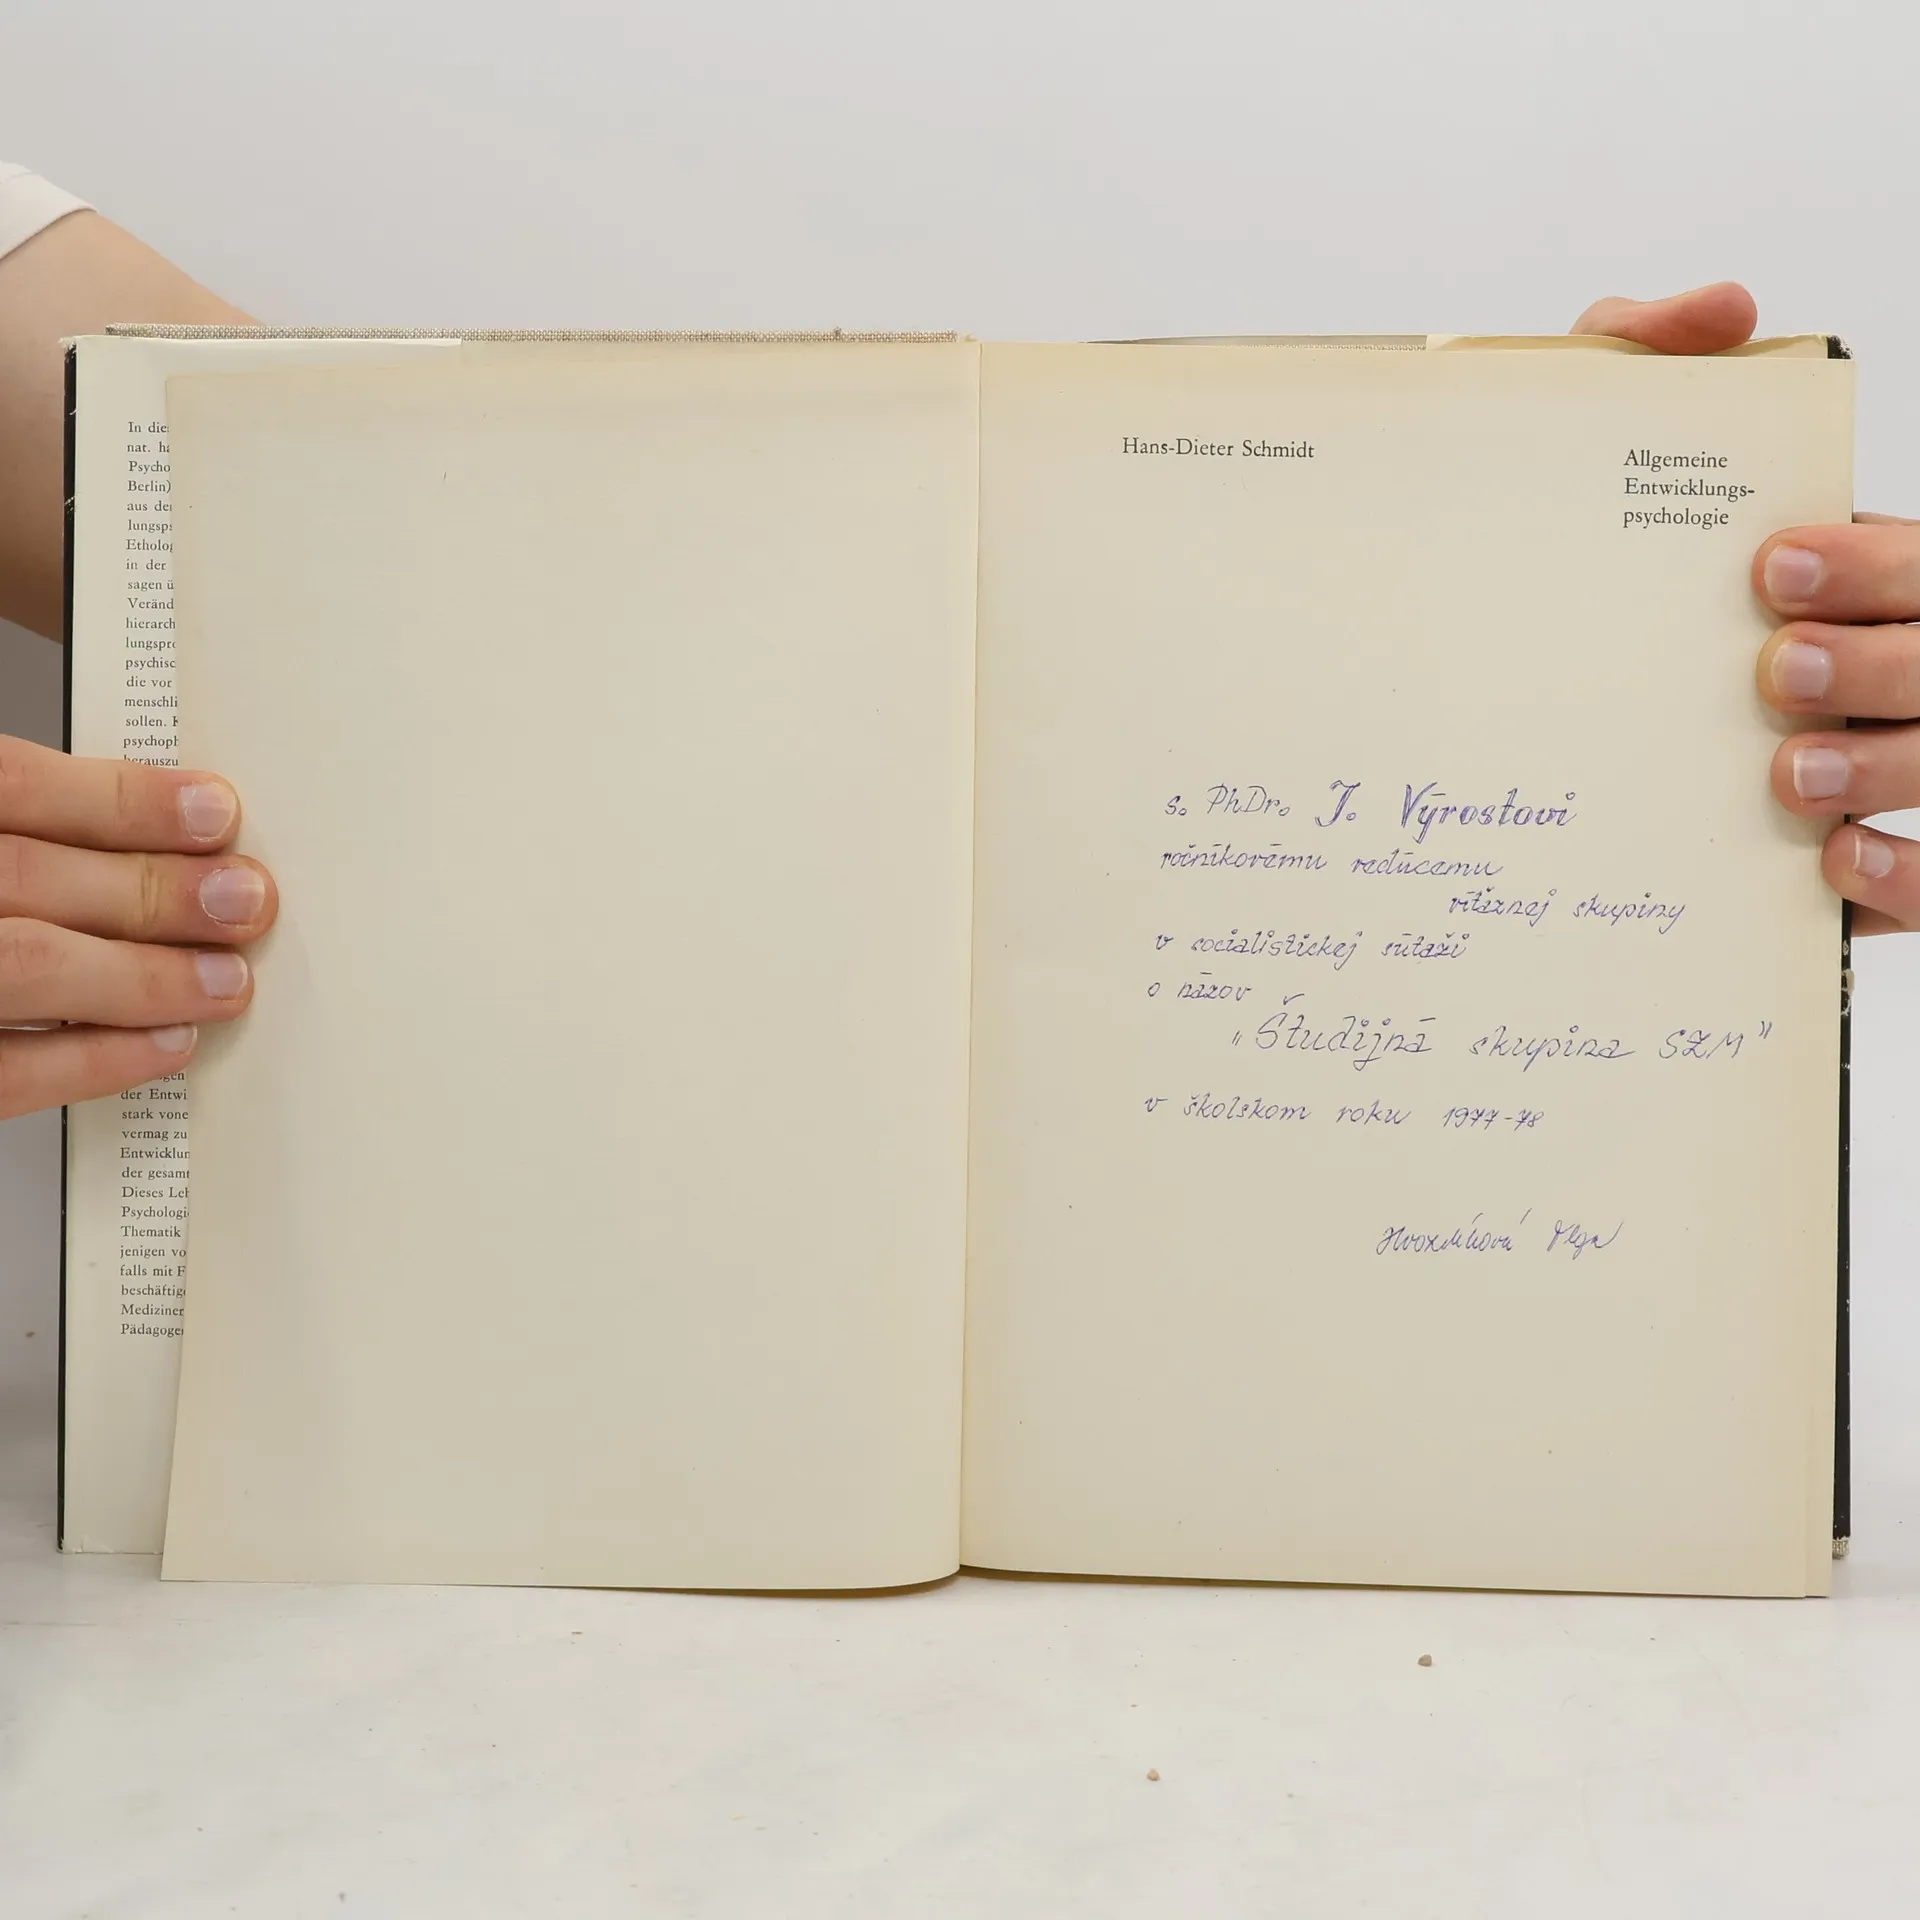 In die
nat. hä
Psycho
Berlin)
aus der
lungsps
Etholog
in der
sagen ü
Veränd
hierarch
lungspro
psychisc
die vor
menschli
sollen. K
psychoph
herauszu
gen
der Entwi
stark vone
vermag zu
Entwicklun
der gesamt
Dieses Leh
Psychologi
Thematik
jenigen vo
falls mit F
beschäftige
Mediziner
Pädagoger
Hans-Dieter Schmidt
Allgemeine
Entwicklungs-
psychologie
s. PhDr. J. Výrostovi
ročníkovému vedúcemu
víťaznej skupiny
v socialistickej súťaži
o názov
"Študijná skupina SZM"
v školskom roku 1977-78
Olga